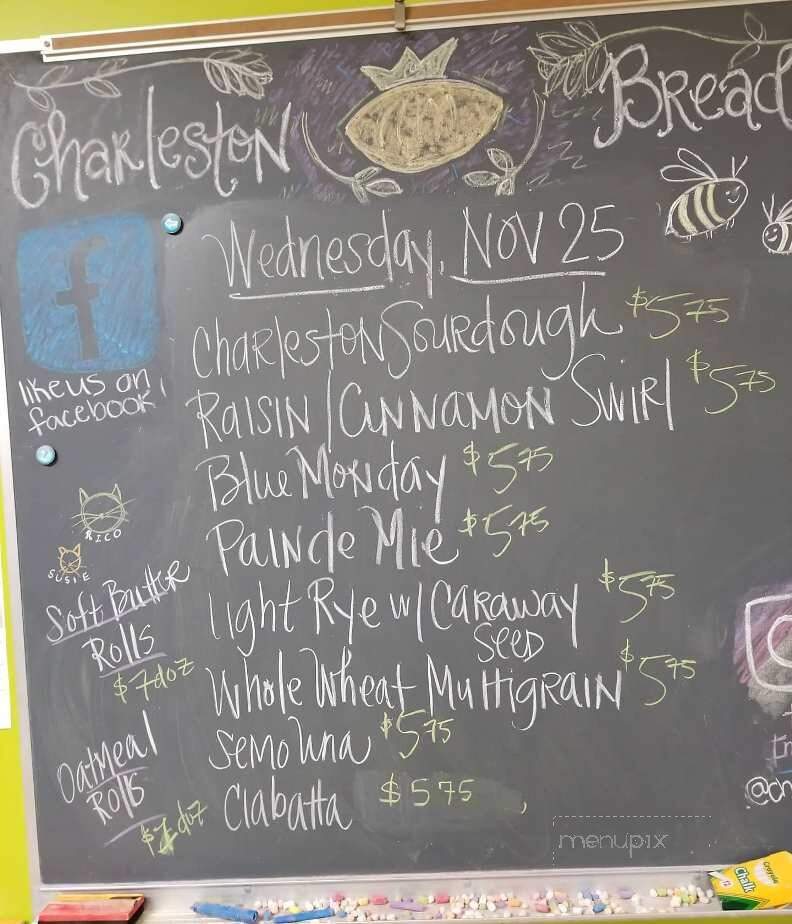 Charleston Bread
Wednesday, Nov 25
f
like us on
facebook!
Charleston Sourdough $5 75
Raisin / Cinnamon Swirl $5 75
Blue Monday $5 75
Pain de Mie $5 75
Light Rye w/ Caraway
Seed $5 75
Whole Wheat Multigrain $5 75
Semolina $5 75
Ciabatta $5 75
RICO
SUSIE
Soft Butter
Rolls
$7 doz
Oatmeal
Rolls
$7 doz
@ch
menupix
Crayola
Chalk